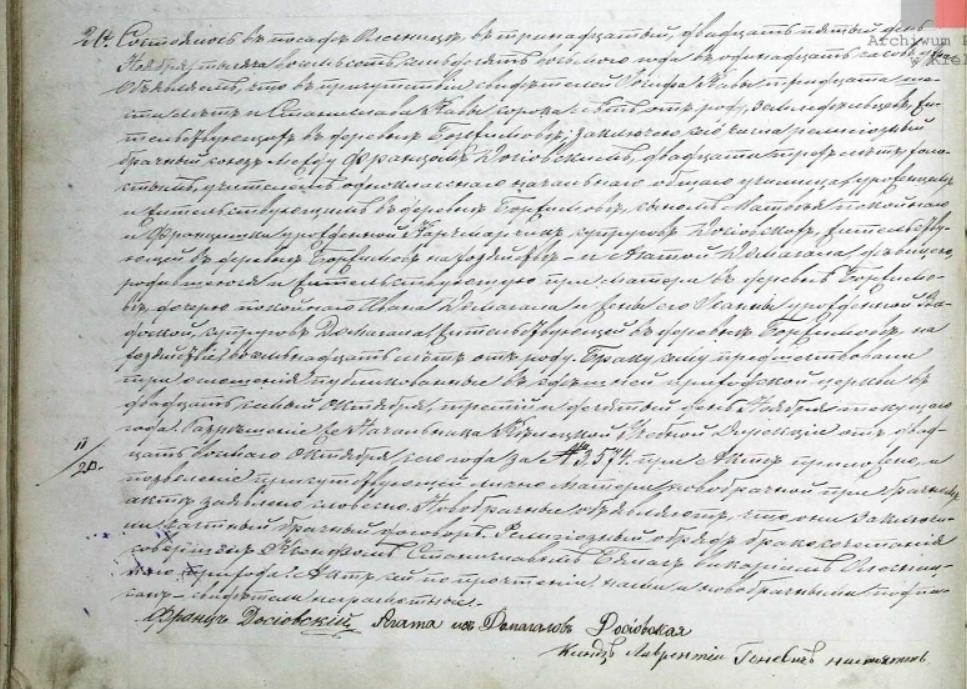 24. Состоялось въ посадѣ Олесницѣ, въ тринадцатый, двадцать пятый день
Archiwum
Ноября, тысяча восемьсотъ семьдесятъ восьмого года въ одинадцать часовъ утра
Объявляемъ, что въ присутствіи свидѣтелей Іосифа Кавы тридцати ше-
сти лѣтъ и Станислава Кавы сорока лѣтъ отъ роду, земледѣльцевъ, жи-
тельствующихъ въ деревнѣ, заключенъ сего числа религіозный
брачный союзъ между Францомъ Досіовскимъ, двадцати трехъ лѣтъ, холо-
стымъ, учителемъ одноклассного начального общого училища, урожденнымъ
и жительствующимъ въ деревнѣ, сыномъ Матвѣя покойного
и Францишки урожденной супруговъ Досіовскихъ, жительству-
ющей въ деревнѣ на хозяйствѣ – и Агатой Домагала, дѣвицею,
родившеюся и жительствующею при матери въ деревнѣ
дочерью покойного Ивана Домагала и жены его урожденной
супруговъ Домагала, жительствующей въ деревнѣ на
хозяйствѣ, восемьнадцать лѣтъ отъ роду. Браку сему предшествовали
три оглашенія публикованныя въ здѣшней приходской церкви въ
двадцать седьмый Октября, третій и десятый день Ноября текущого
года. Разрѣшеніе Начальника Кѣлецкой Учебной Дирекціи отъ двад-
11/20. цать Октября сего года за № 3,574. при Актѣ приложено, и
позволеніе присутствующей лично матери новобрачной при брачномъ
актѣ заявлено словесно. Новобрачные объявляютъ, что они заключи-
ли частный брачный договоръ. Религіозный обрядъ бракосочетанія
совершенъ Ксендзомъ Станиславомъ викаріемъ Олесниц-
кого прихода. Актъ сей по прочтеніи, нами и новобрачными подпи-
санъ – свидѣтели неграмотные.
Францъ Досіовскій Агата изъ Домагаловъ Досіовская
Ксендзъ Лаврентій настоятель